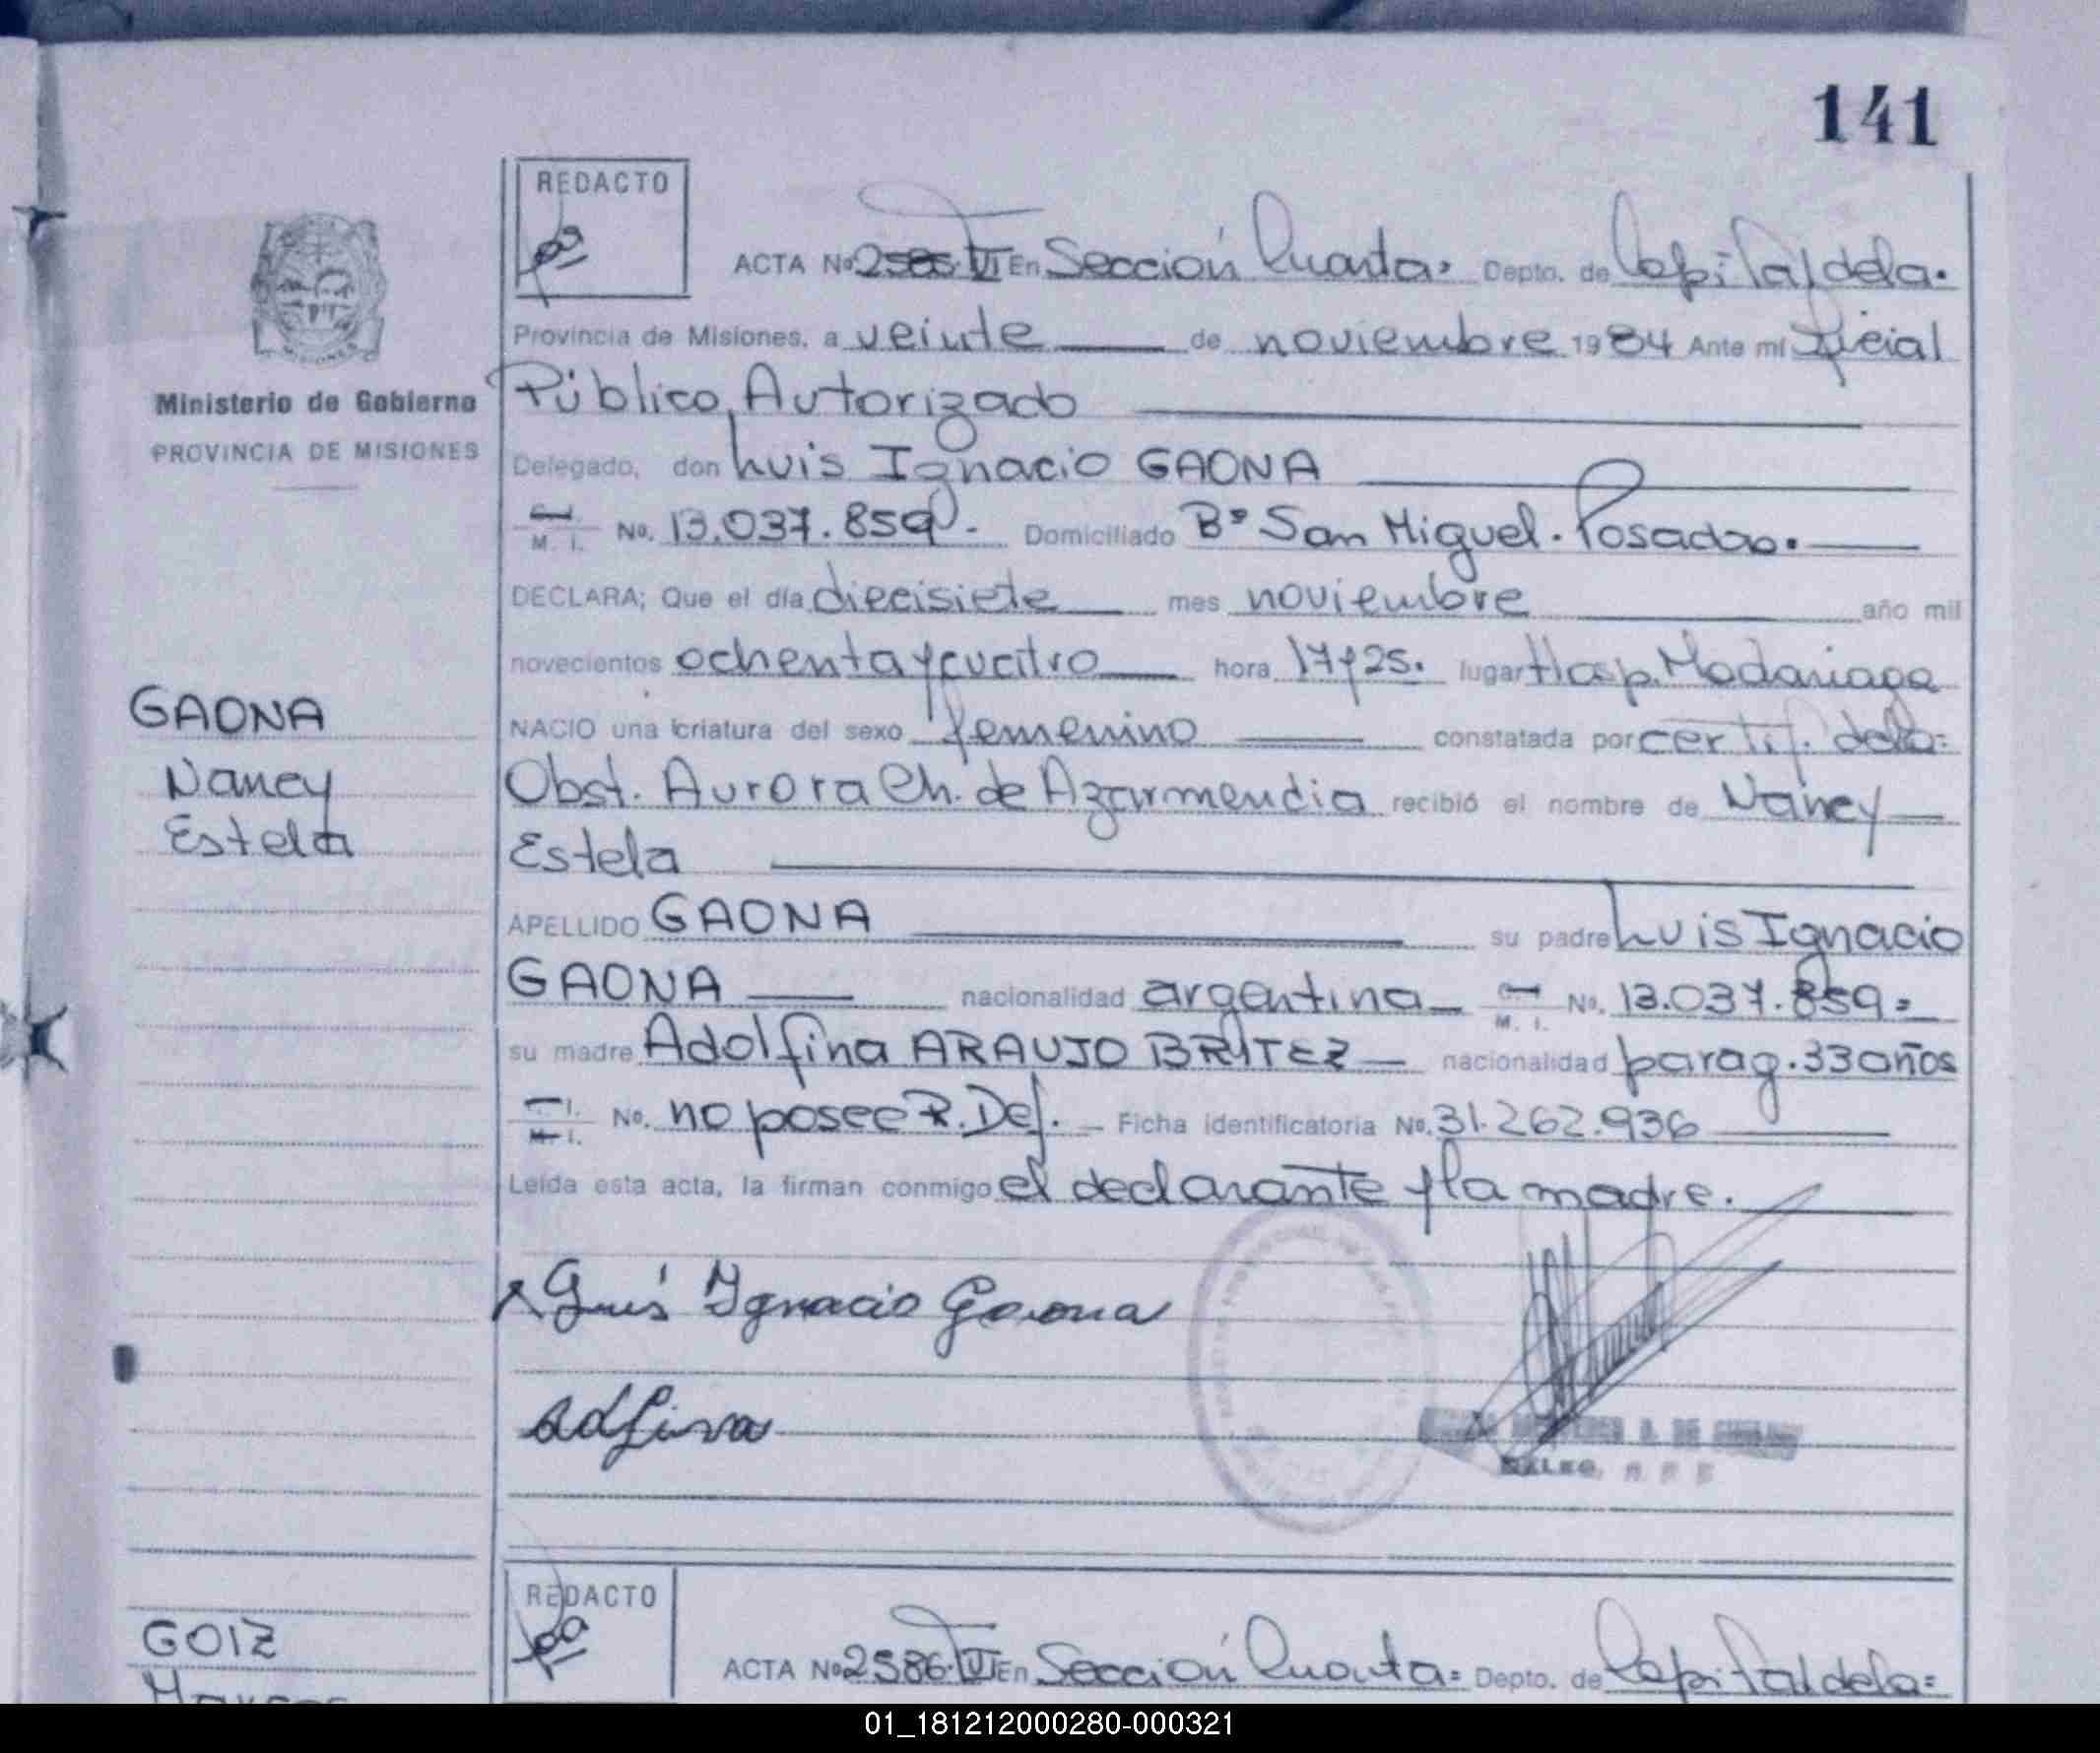 141
REDACTO
ACTA No 2585-VI En Sección Cuarta. Depto. de Capital de la.
Provincia de Misiones, a veinte de noviembre 1984 Ante mí Oficial
Ministerio de Gobierno
PROVINCIA DE MISIONES
Público, Autorizado
Delegado, don Luis Ignacio GAONA
M. I. No. 13.037.859. Domiciliado Bº San Miguel. Posadas.
DECLARA; Que el día diecisiete mes noviembre año mil
novecientos ochenta y cuatro hora 17 y 25. lugar Hosp. Madariaga
GAONA
Nancy
Estela
NACIO una criatura del sexo femenino constatada por certif. de la
Obst. Aurora Ch. de Azarmendia recibió el nombre de Nancy
Estela
APELLIDO GAONA su padre Luis Ignacio
GAONA nacionalidad argentina M. I. No. 13.037.859
su madre Adolfina ARAUJO BRITEZ nacionalidad parag. 33 años
No. no posee R. Def. Ficha identificatoria No. 31.262.936
Leída esta acta, la firman conmigo el declarante y la madre.
Luis Ignacio Gaona
Adfina
GOIZ
REDACTO
ACTA No 2586-VI En Sección Cuarta Depto. de Capital de la
01_181212000280-000321